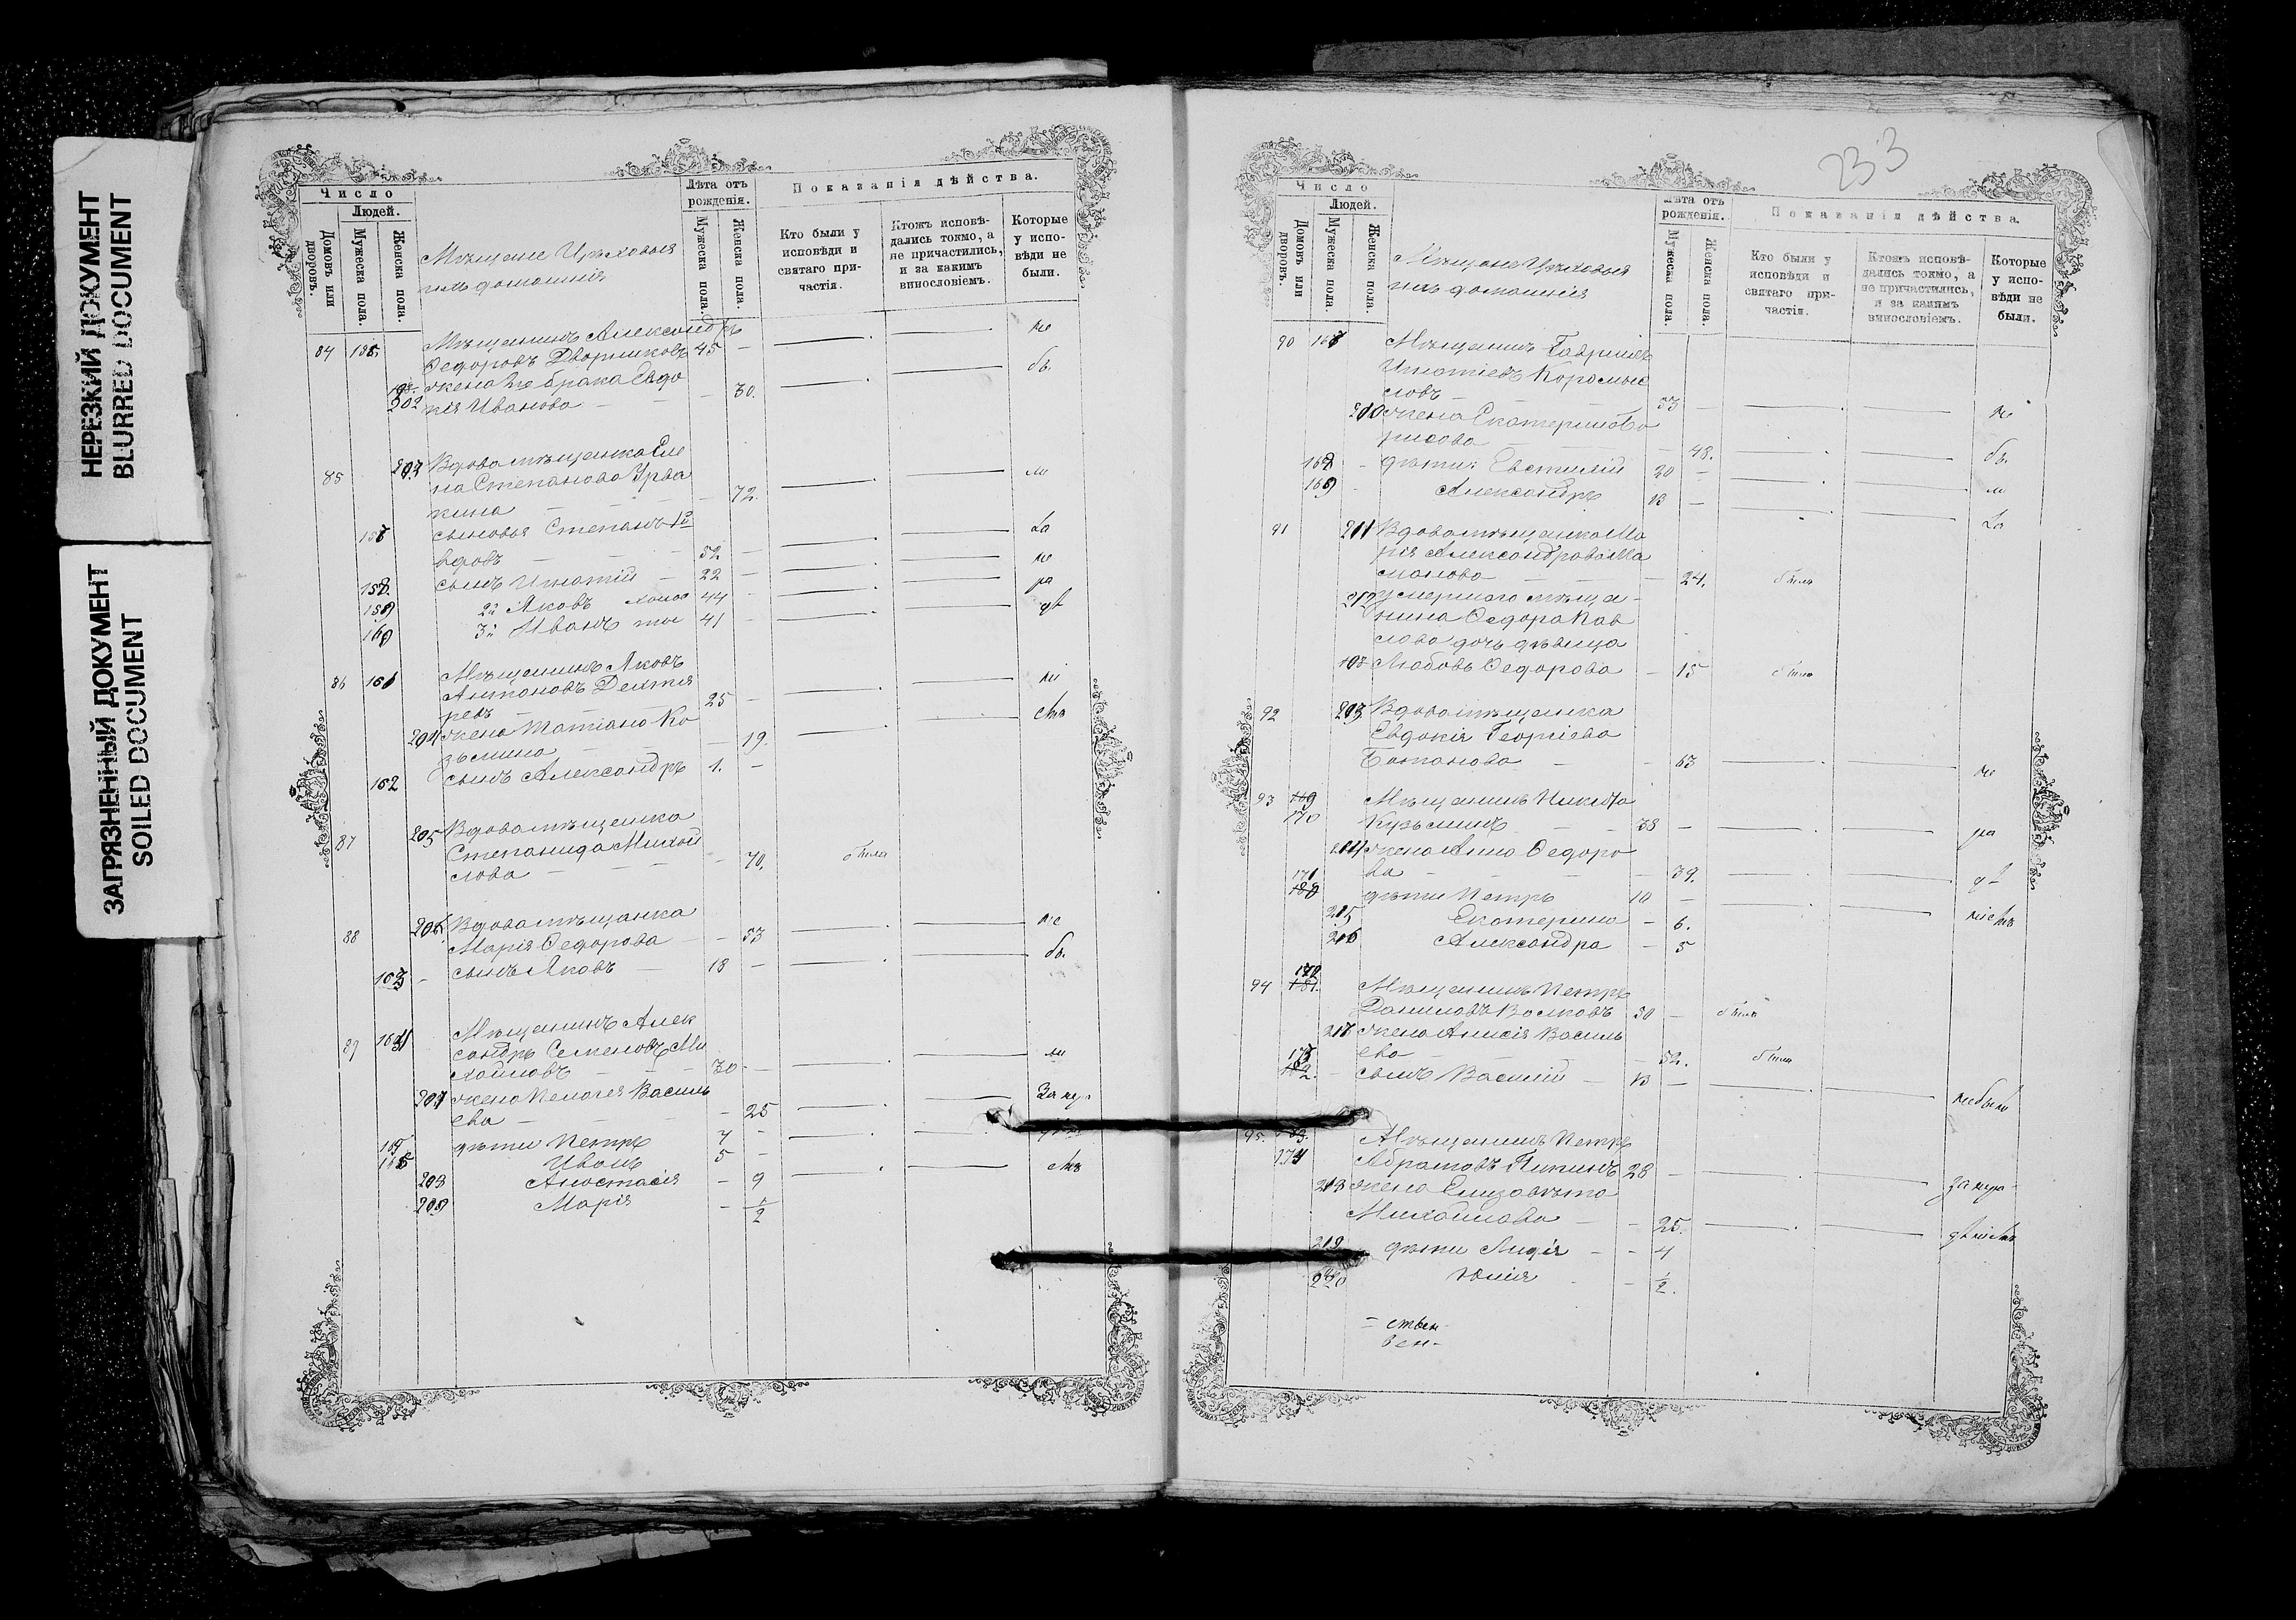 НЕРЕЗКИЙ ДОКУМЕНТ
BLURRED DOCUMENT
ЗАГРЯЗНЕННЫЙ ДОКУМЕНТ
SOILED DOCUMENT
Число
Людей.
Домовъ или дворовъ.
Мужеска пола.
Женска пола.
Мѣщане
ихъ домашнія
Лѣта отъ рожденія.
Мужеска пола.
Женска пола.
Показанія дѣйства.
Кто были у исповѣди и святаго причастія.
Ктожъ исповѣдались токмо, а не причастились, и за какимъ винословіемъ.
Которые у исповѣди не были.
Мѣщанинъ Александръ не
84 Ѳедоровъ Дворниковъ 45 —
жена 2го брака Евдо бы.
202 кія Иванова — 30.
Вдова мѣщанка Еле
85 на Степанова — 72. ли
сыновья Степанъ 1й за
вдовъ — 52 — не
158 сынъ Игнатій — 22 — ра
159 2й Яковъ холос 44 — дѣ
160 3й Иванъ то 41 —
Мѣщанинъ Яковъ
86 161 Антоновъ Дехтя ні
ревъ — 25 —
204 жена Татіана Ко емъ
зьмина — 19.
162 сынъ Александръ 1. —
87 205 Вдова мѣщанка
Степанида Михай
лова — 70. была
88 206 Вдова мѣщанка не
Марія Ѳедорова — 53
163 сынъ Яковъ 18 — бы.
89 164 Мѣщанинъ Алек
сандръ Семеновъ Ми ли
хайловъ — 30 —
207 жена Пелагея Василь За не
ева — 25
165 дѣти Петръ 7 —
166 Иванъ 5 — емъ
208 Анастасія — 9
209 Марія — 1/2
233
Число
Людей.
Домовъ или дворовъ.
Мужеска пола.
Женска пола.
Мѣщане
ихъ домашнія
Лѣта отъ рожденія.
Мужеска пола.
Женска пола.
Показанія дѣйства.
Кто были у исповѣди и святаго причастія.
Ктожъ исповѣдались токмо, а не причастились, и за какимъ винословіемъ.
Которые у исповѣди не были.
90 167 Мѣщанинъ Гавріилъ
Игнатіевъ Коромыс
ловъ — 53 — не
210 жена Екатерина Бо
рисова — 48. бы.
168 дѣти: Евстигній 20 — ли
169 Александръ 13 — За
91 211 Вдова мѣщанка Ма
рія Александрова Ма
— 24. была
212 умершаго мѣща
нина Ѳедора Кав
дочь дѣвица
Любовь Ѳедорова — 15 была
92 213 Вдова мѣщанка
Евдокія Георгіева
— 63 не
93 169 Мѣщанинъ Никита
170 Кузьминъ — 38 — ра
214 жена Анна Ѳедоро
ва — 39. дѣ
171 дѣти Петръ 10 — ніемъ
215 Екатерина — 6.
216 Александра — 5
172
94 Мѣщанинъ Петръ
Даниловъ Волковъ 50 — былъ
217 жена Анисія Василь
173 ева — 52. была
сынъ Василій — 13 — небылъ
95. Мѣщанинъ Петръ
174 Абрамовъ 28 — за нера
218 жена Елизавета
Михайлова — 25. дѣніемъ
219 дѣти Лидія — 4
220 Юлія — 1/2.